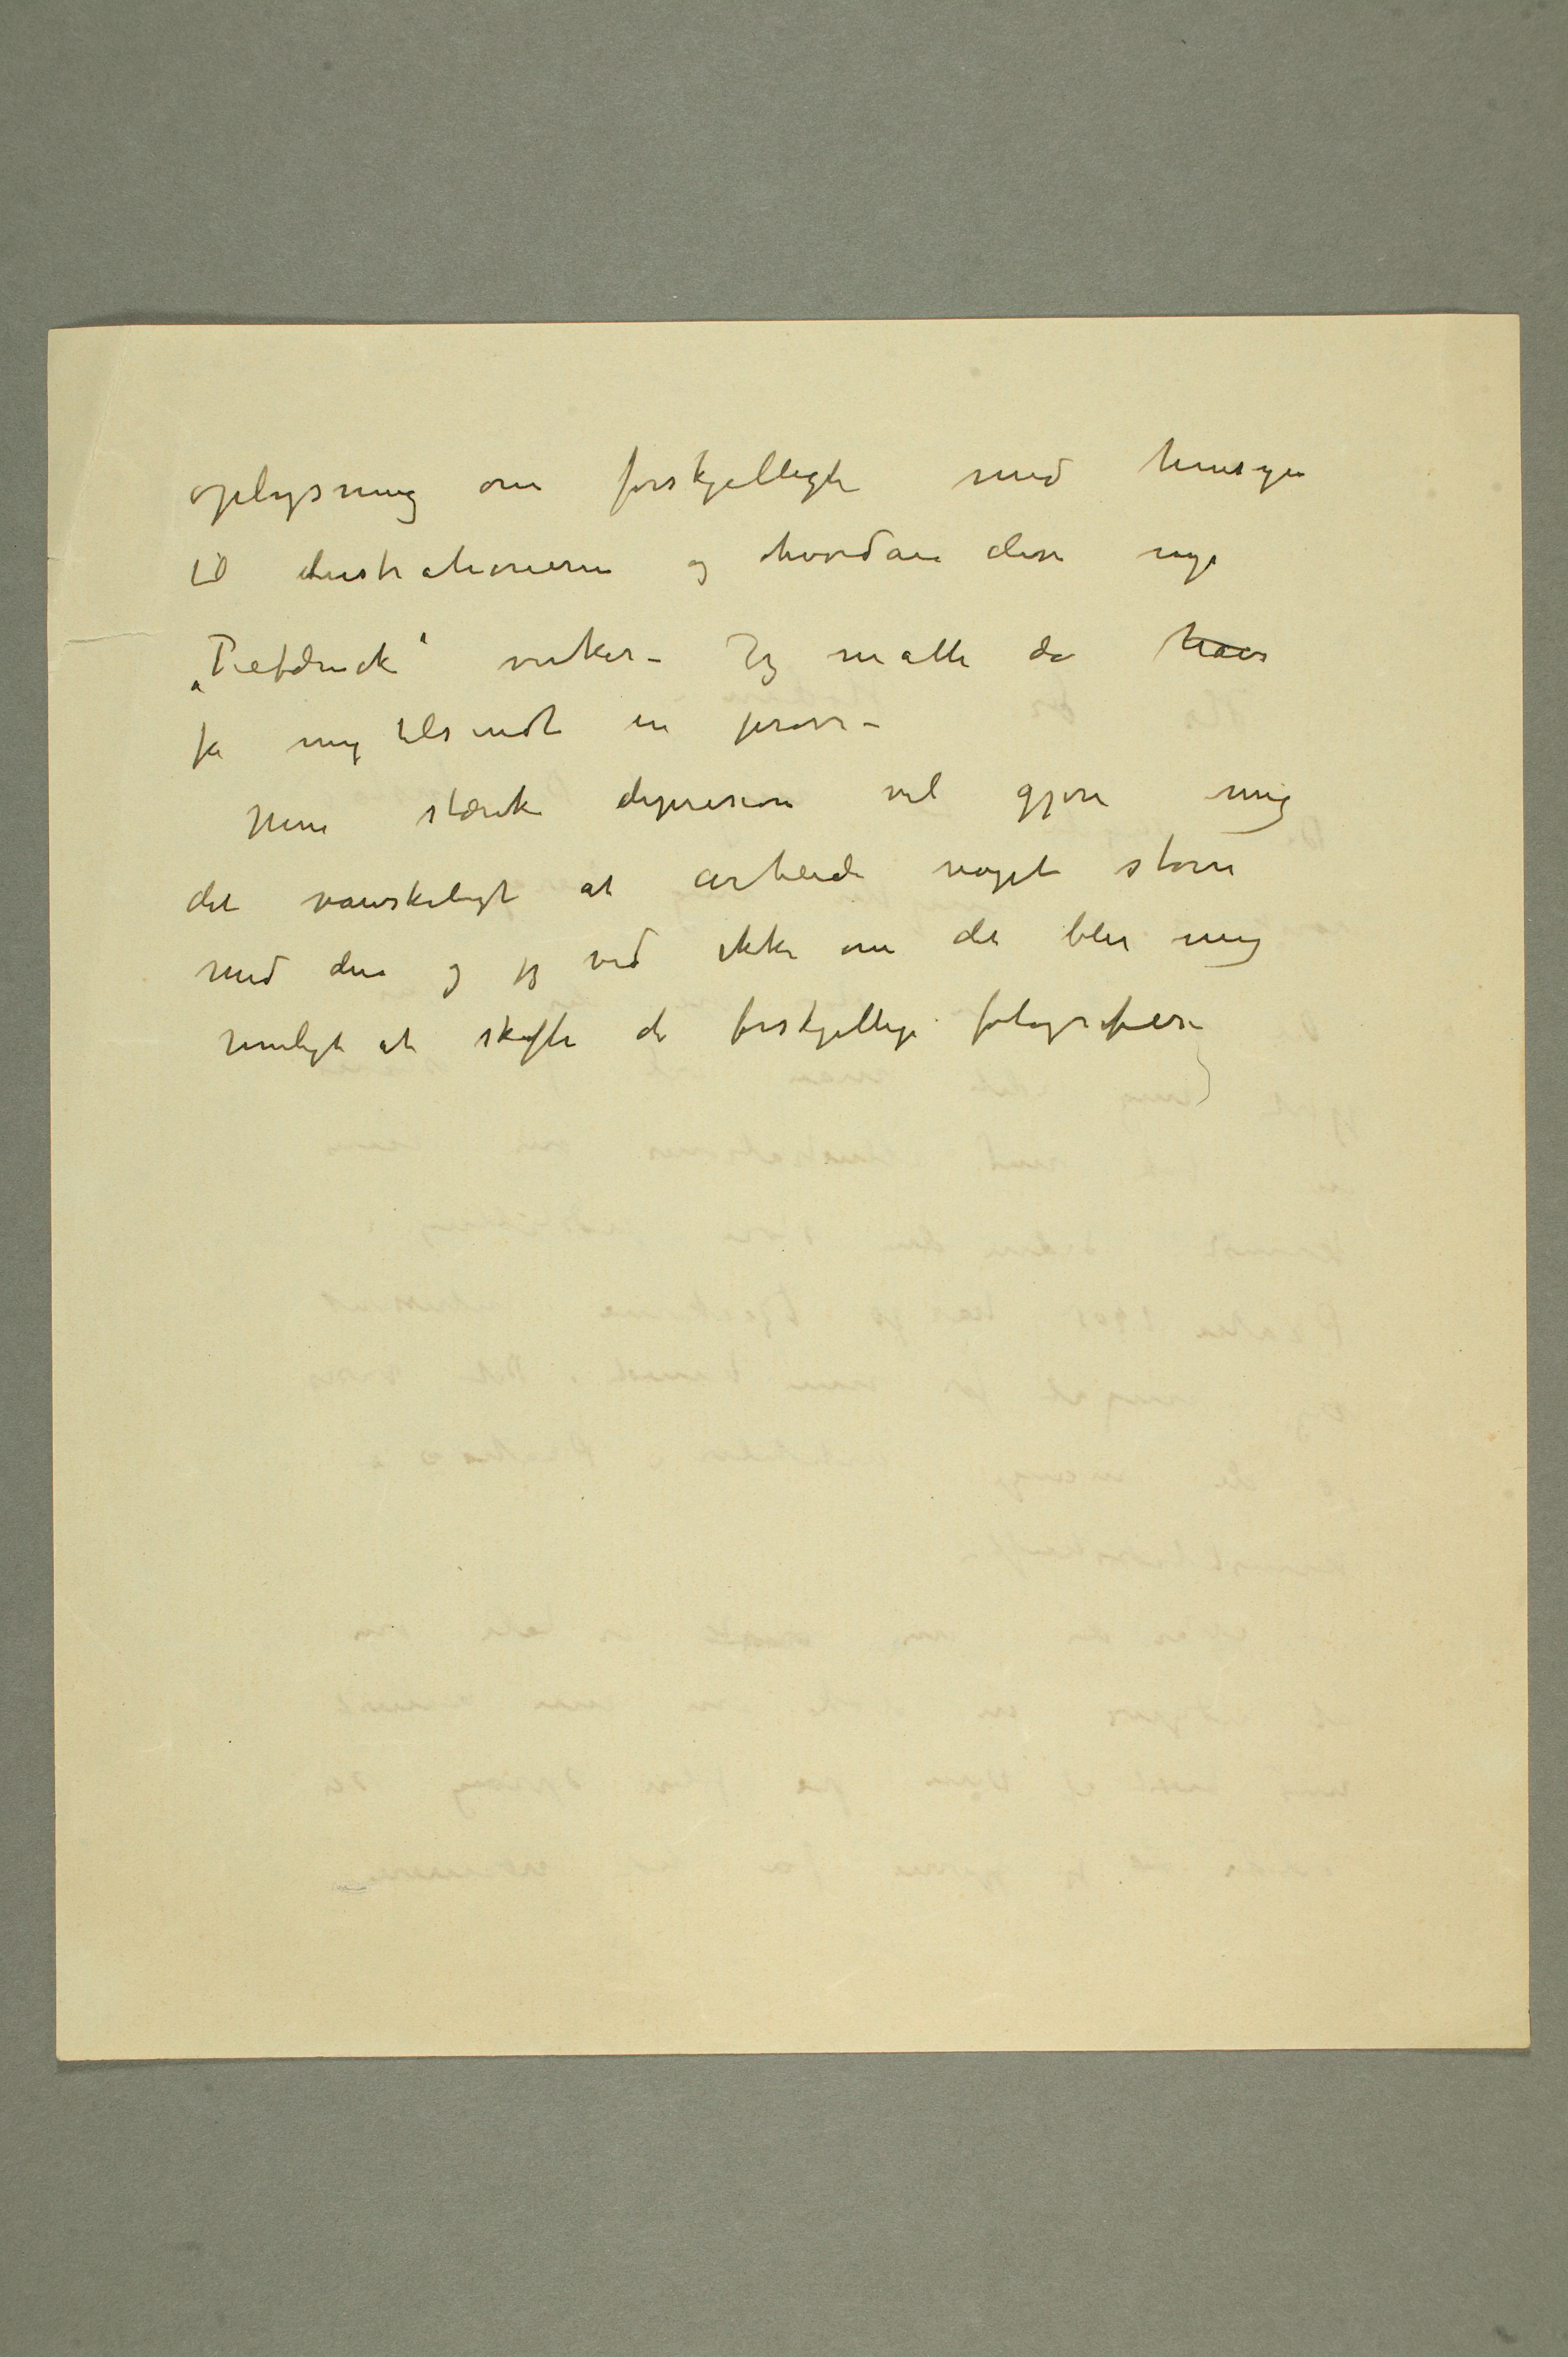 oplysning om forskjelligt med hensyn
til illustrationerne og hvordan den nye
„Tiefdruck“ virker – Jeg måtte da have
få mig tilsendt en prøve –
Min stærke depresion vil gjøre mig
det vanskeligt at arbeide noget større
med den og jeg ved ikke om det blir mig
muligt at skaffe de forskjellige fotografier